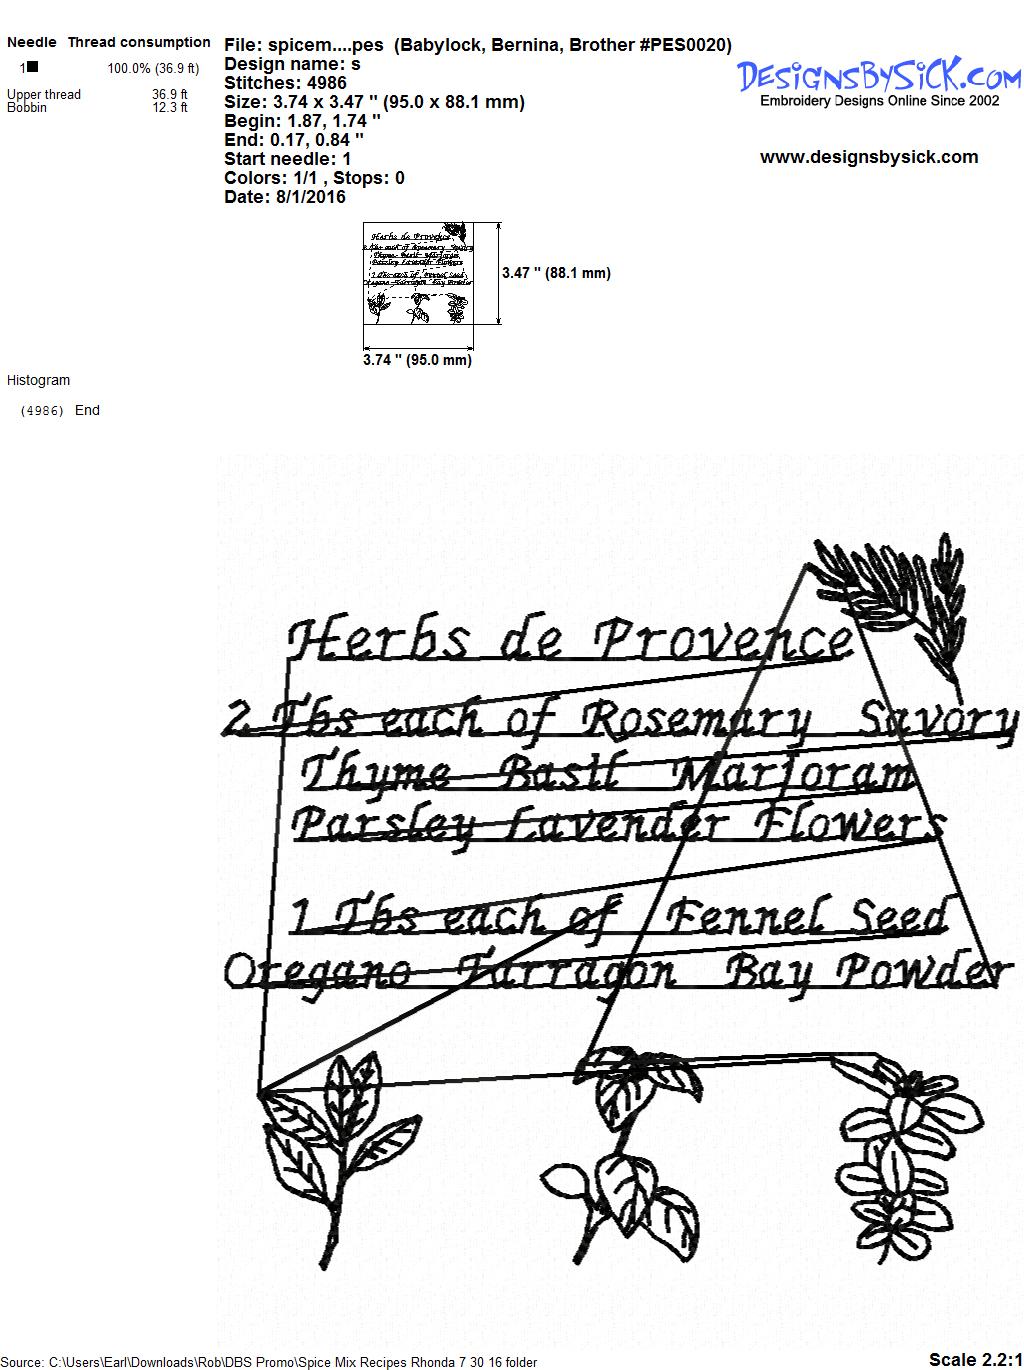 Needle Thread consumption
1 100.0% (36.9 ft)
Upper thread 36.9 ft
Bobbin 12.3 ft
File: spicem....pes (Babylock, Bernina, Brother #PES0020)
Design name: s
Stitches: 4986
Size: 3.74 x 3.47 " (95.0 x 88.1 mm)
Begin: 1.87, 1.74 "
End: 0.17, 0.84 "
Start needle: 1
Colors: 1/1 , Stops: 0
Date: 8/1/2016
DESIGNSBYSICK.COM
Embroidery Designs Online Since 2002
www.designsbysick.com
Herbs de Provence
2 Tbs each of Rosemary Savory
Thyme Basil Marjoram
Parsley Lavender Flowers
1 Tbs each of Fennel Seed
Oregano Tarragon Bay Powder
3.47 " (88.1 mm)
3.74 " (95.0 mm)
Histogram
(4986) End
Herbs de Provence
2 Tbs each of Rosemary Savory
Thyme Basil Marjoram
Parsley Lavender Flowers
1 Tbs each of Fennel Seed
Oregano Tarragon Bay Powder
Source: C:\Users\Earl\Downloads\Rob\DBS Promo\Spice Mix Recipes Rhonda 7 30 16 folder
Scale 2.2:1